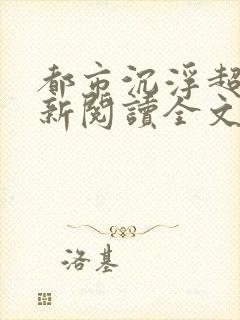 都市沉浮超
新閱讀全文
洛基